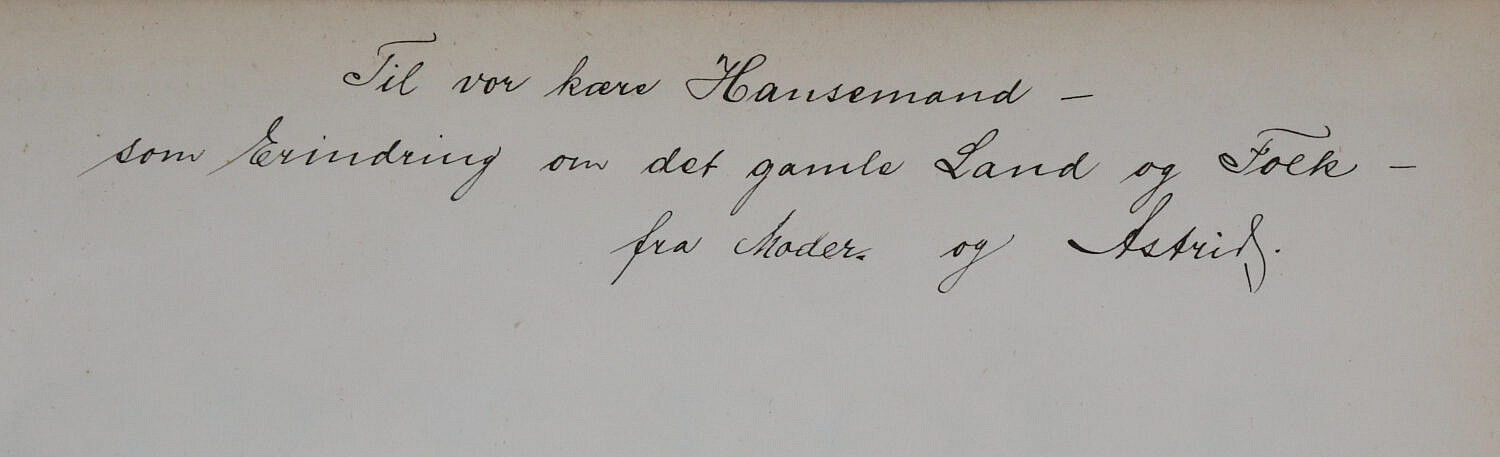 Til vor kære Hansemand –
som Erindring om det gamle Land og Folk –
fra Moder. og Astrid.